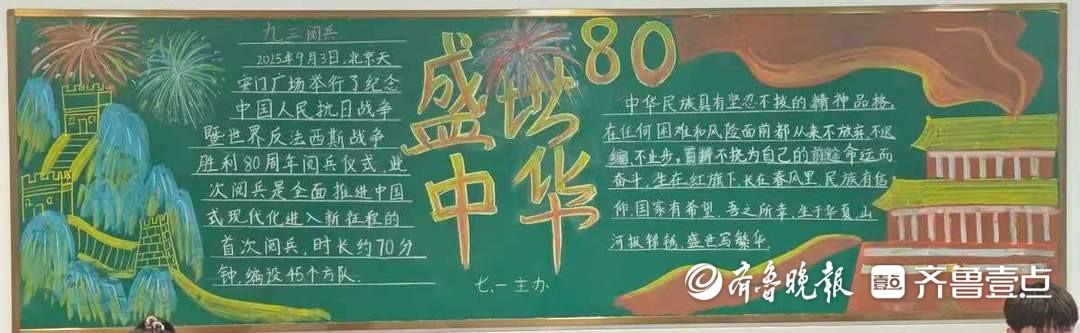 九三阅兵
2025年9月3日,北京天
安门广场举行了纪念
中国人民抗日战争
暨世界反法西斯战争
胜利80周年阅兵仪式,此
次阅兵是全面推进中国
式现代化进入新征程的
首次阅兵,时长约70分
钟,编设45个方队.
盛世
中华
80
七.一主办
中华民族具有坚忍不拔的精神品格,
在任何困难和风险面前都从来不放弃,不退
缩,不止步,百折不挠为自己的前途命运而
奋斗,生在红旗下,长在春风里,民族有信
仰,国家有希望,吾之所幸,生于华夏,山
河披锦绣,盛世写繁华
齐鲁晚报
齐鲁壹点